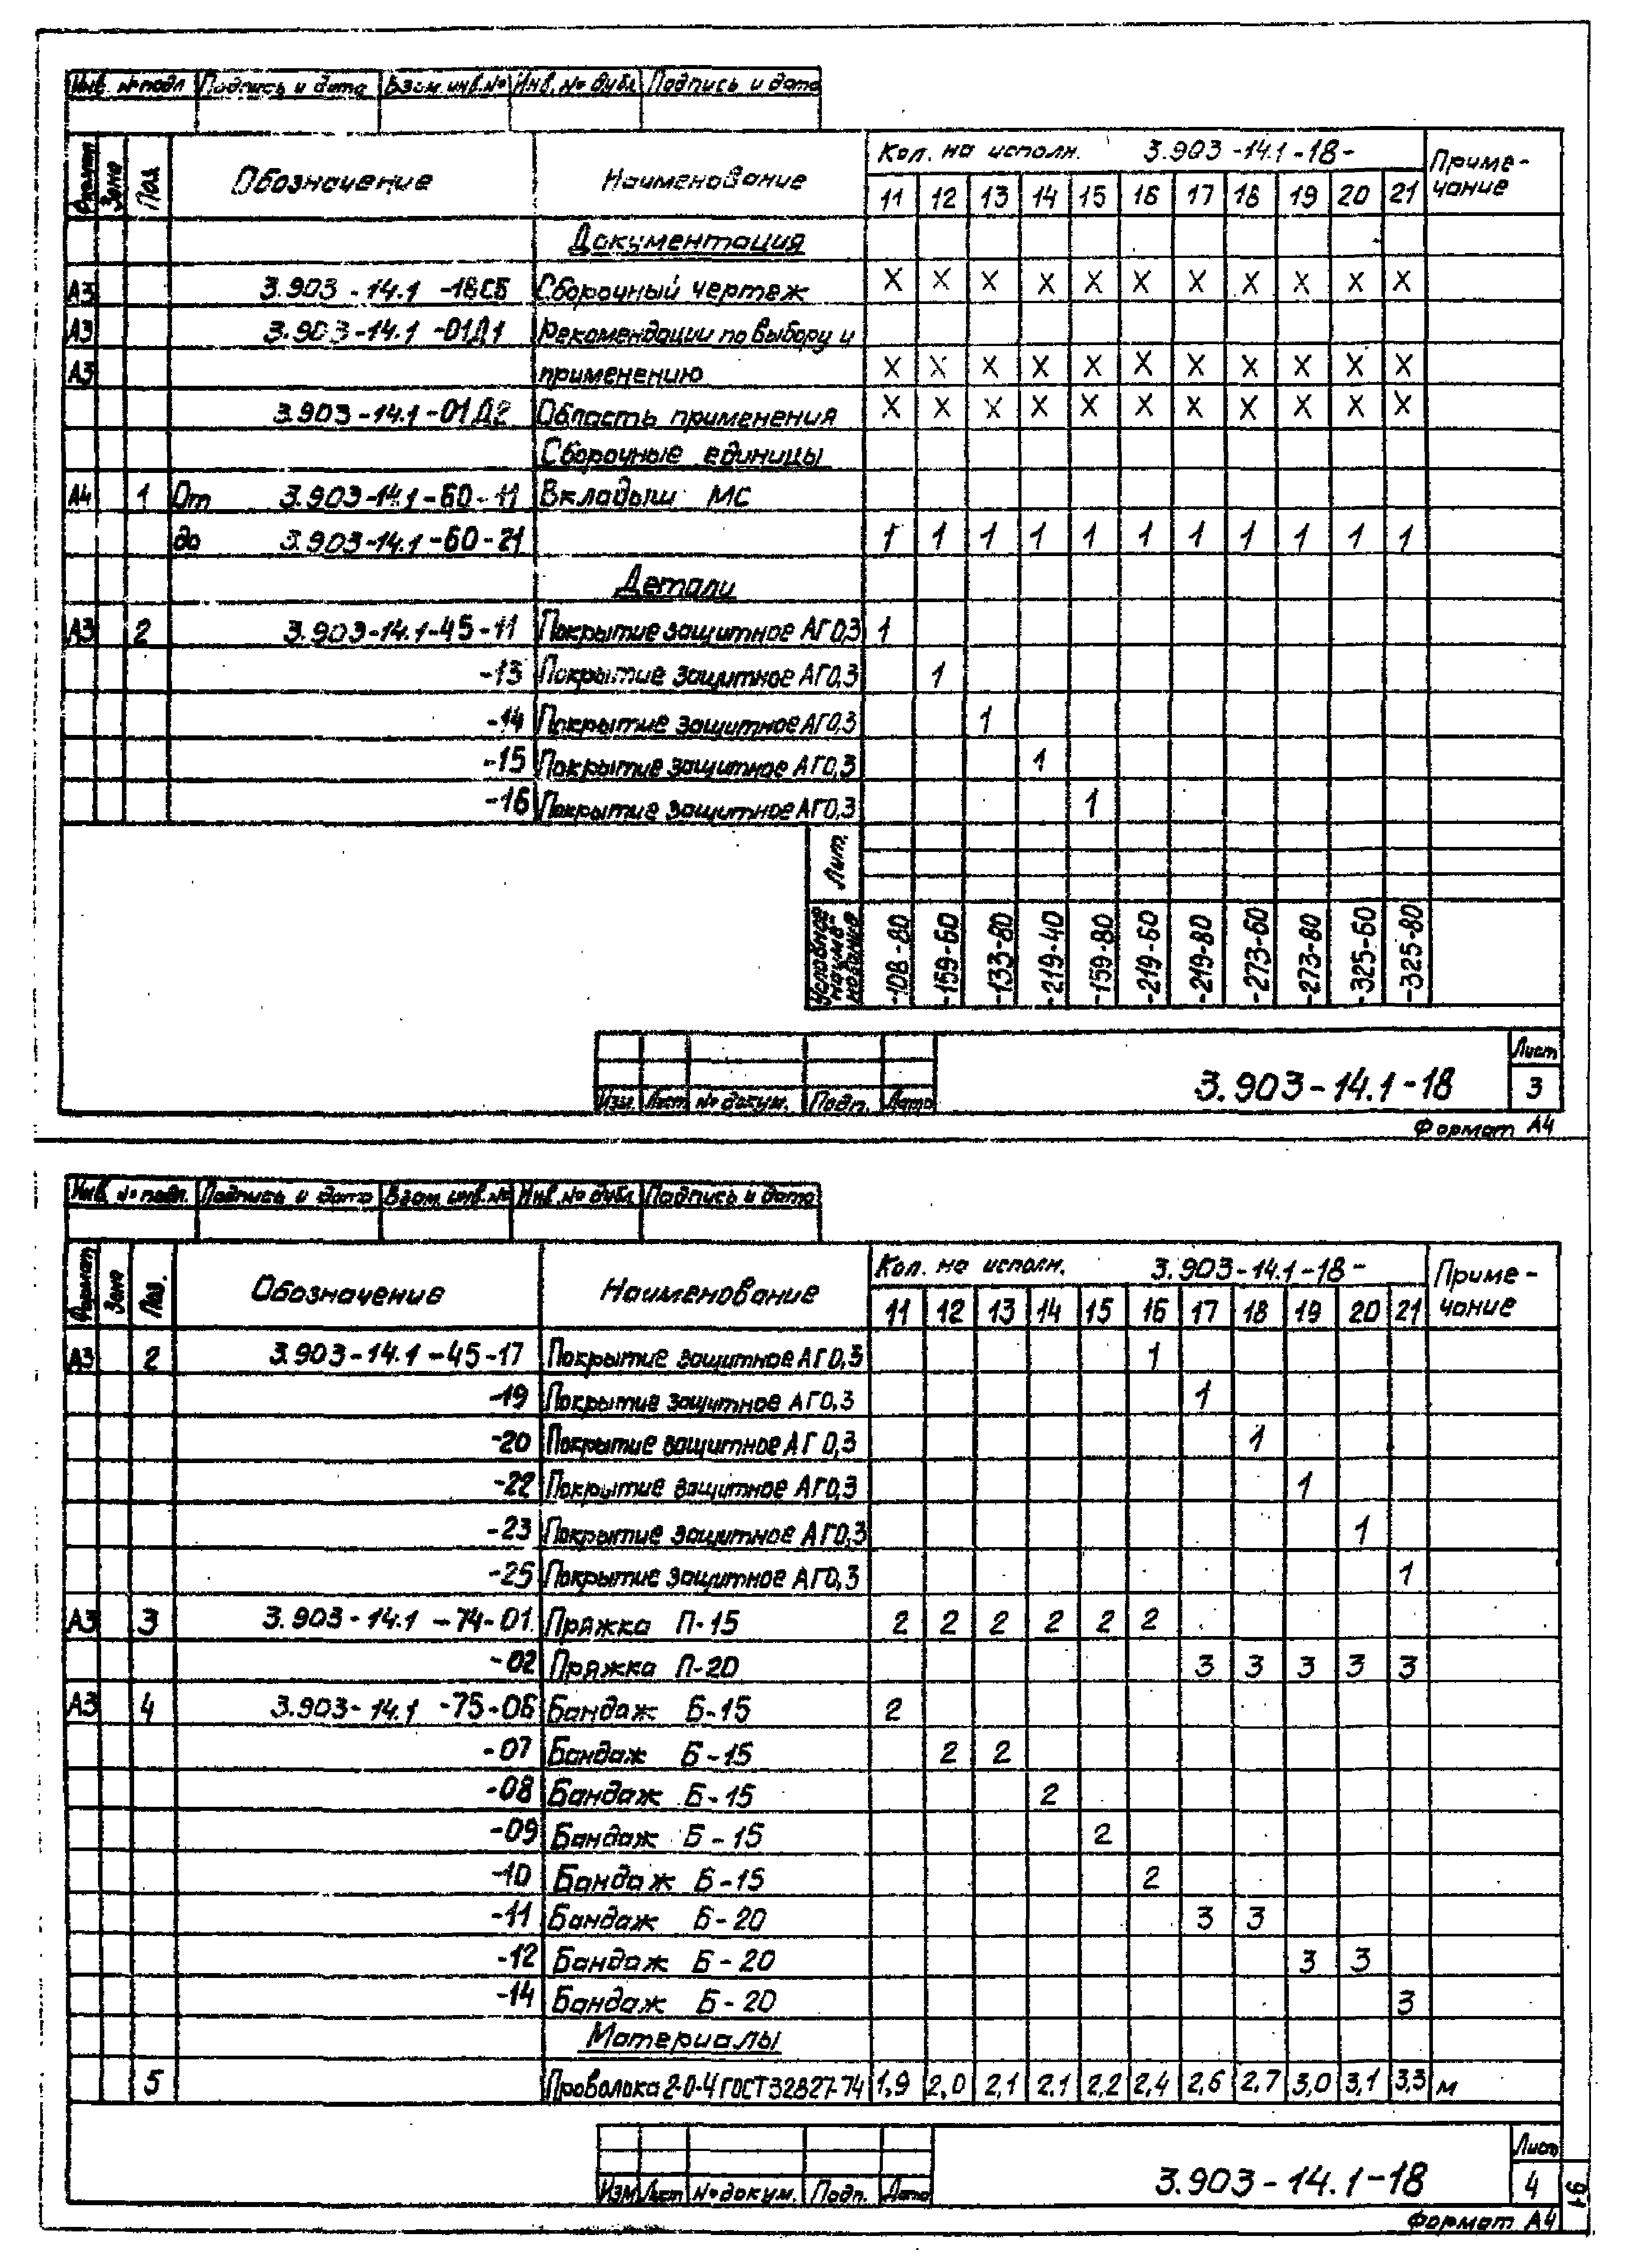 Инв. № подл. Подпись и дата Взам. инв. № Инв. № дубл. Подпись и дата
Формат Зона Поз. Обозначение Наименование Кол. на исполн. 3.903-14.1-18- Приме-чание
11 12 13 14 15 16 17 18 19 20 21
Документация
А3 3.903-14.1-18СБ Сборочный чертеж X X X X X X X X X X X
А3 3.903-14.1-01Д1 Рекомендации по выбору и
А3 применению X X X X X X X X X X X
3.903-14.1-01Д2 Область применения X X X X X X X X X X X
Сборочные единицы
А4 1 От 3.903-14.1-60-11 Вкладыш МС
до 3.903-14.1-60-21 1 1 1 1 1 1 1 1 1 1 1
Детали
А3 2 3.903-14.1-45-11 Покрытие защитное АГ0,3 1
-13 Покрытие защитное АГ0,3 1
-14 Покрытие защитное АГ0,3 1
-15 Покрытие защитное АГ0,3 1
-16 Покрытие защитное АГ0,3 1
Лит.
Условное наиме-нование -108-80 -159-60 -133-80 -219-40 -159-80 -219-60 -219-80 -273-60 -273-80 -325-60 -325-80
Изм. Лист № докум. Подп. Дата 3.903-14.1-18 Лист 3
Формат А4
Инв. № подл. Подпись и дата Взам. инв. № Инв. № дубл. Подпись и дата
Формат Зона Поз. Обозначение Наименование Кол. на исполн. 3.903-14.1-18- Приме-чание
11 12 13 14 15 16 17 18 19 20 21
А3 2 3.903-14.1-45-17 Покрытие защитное АГ0,3 1
-19 Покрытие защитное АГ0,3 1
-20 Покрытие защитное АГ0,3 1
-22 Покрытие защитное АГ0,3 1
-23 Покрытие защитное АГ0,3 1
-25 Покрытие защитное АГ0,3 1
А3 3 3.903-14.1-74-01 Пряжка П-15 2 2 2 2 2 2
-02 Пряжка П-20 3 3 3 3 3
А3 4 3.903-14.1-75-06 Бандаж Б-15 2
-07 Бандаж Б-15 2 2
-08 Бандаж Б-15 2
-09 Бандаж Б-15 2
-10 Бандаж Б-15 2
-11 Бандаж Б-20 3 3
-12 Бандаж Б-20 3 3
-14 Бандаж Б-20 3
Материалы
5 Проволока 2-0-4 ГОСТ 32827-74 1,9 2,0 2,1 2.1 2,2 2,4 2,6 2,7 3,0 3,1 3,3 м
Изм Лист № докум. Подп. Дата 3.903-14.1-18 Лист 4
Формат А4
91